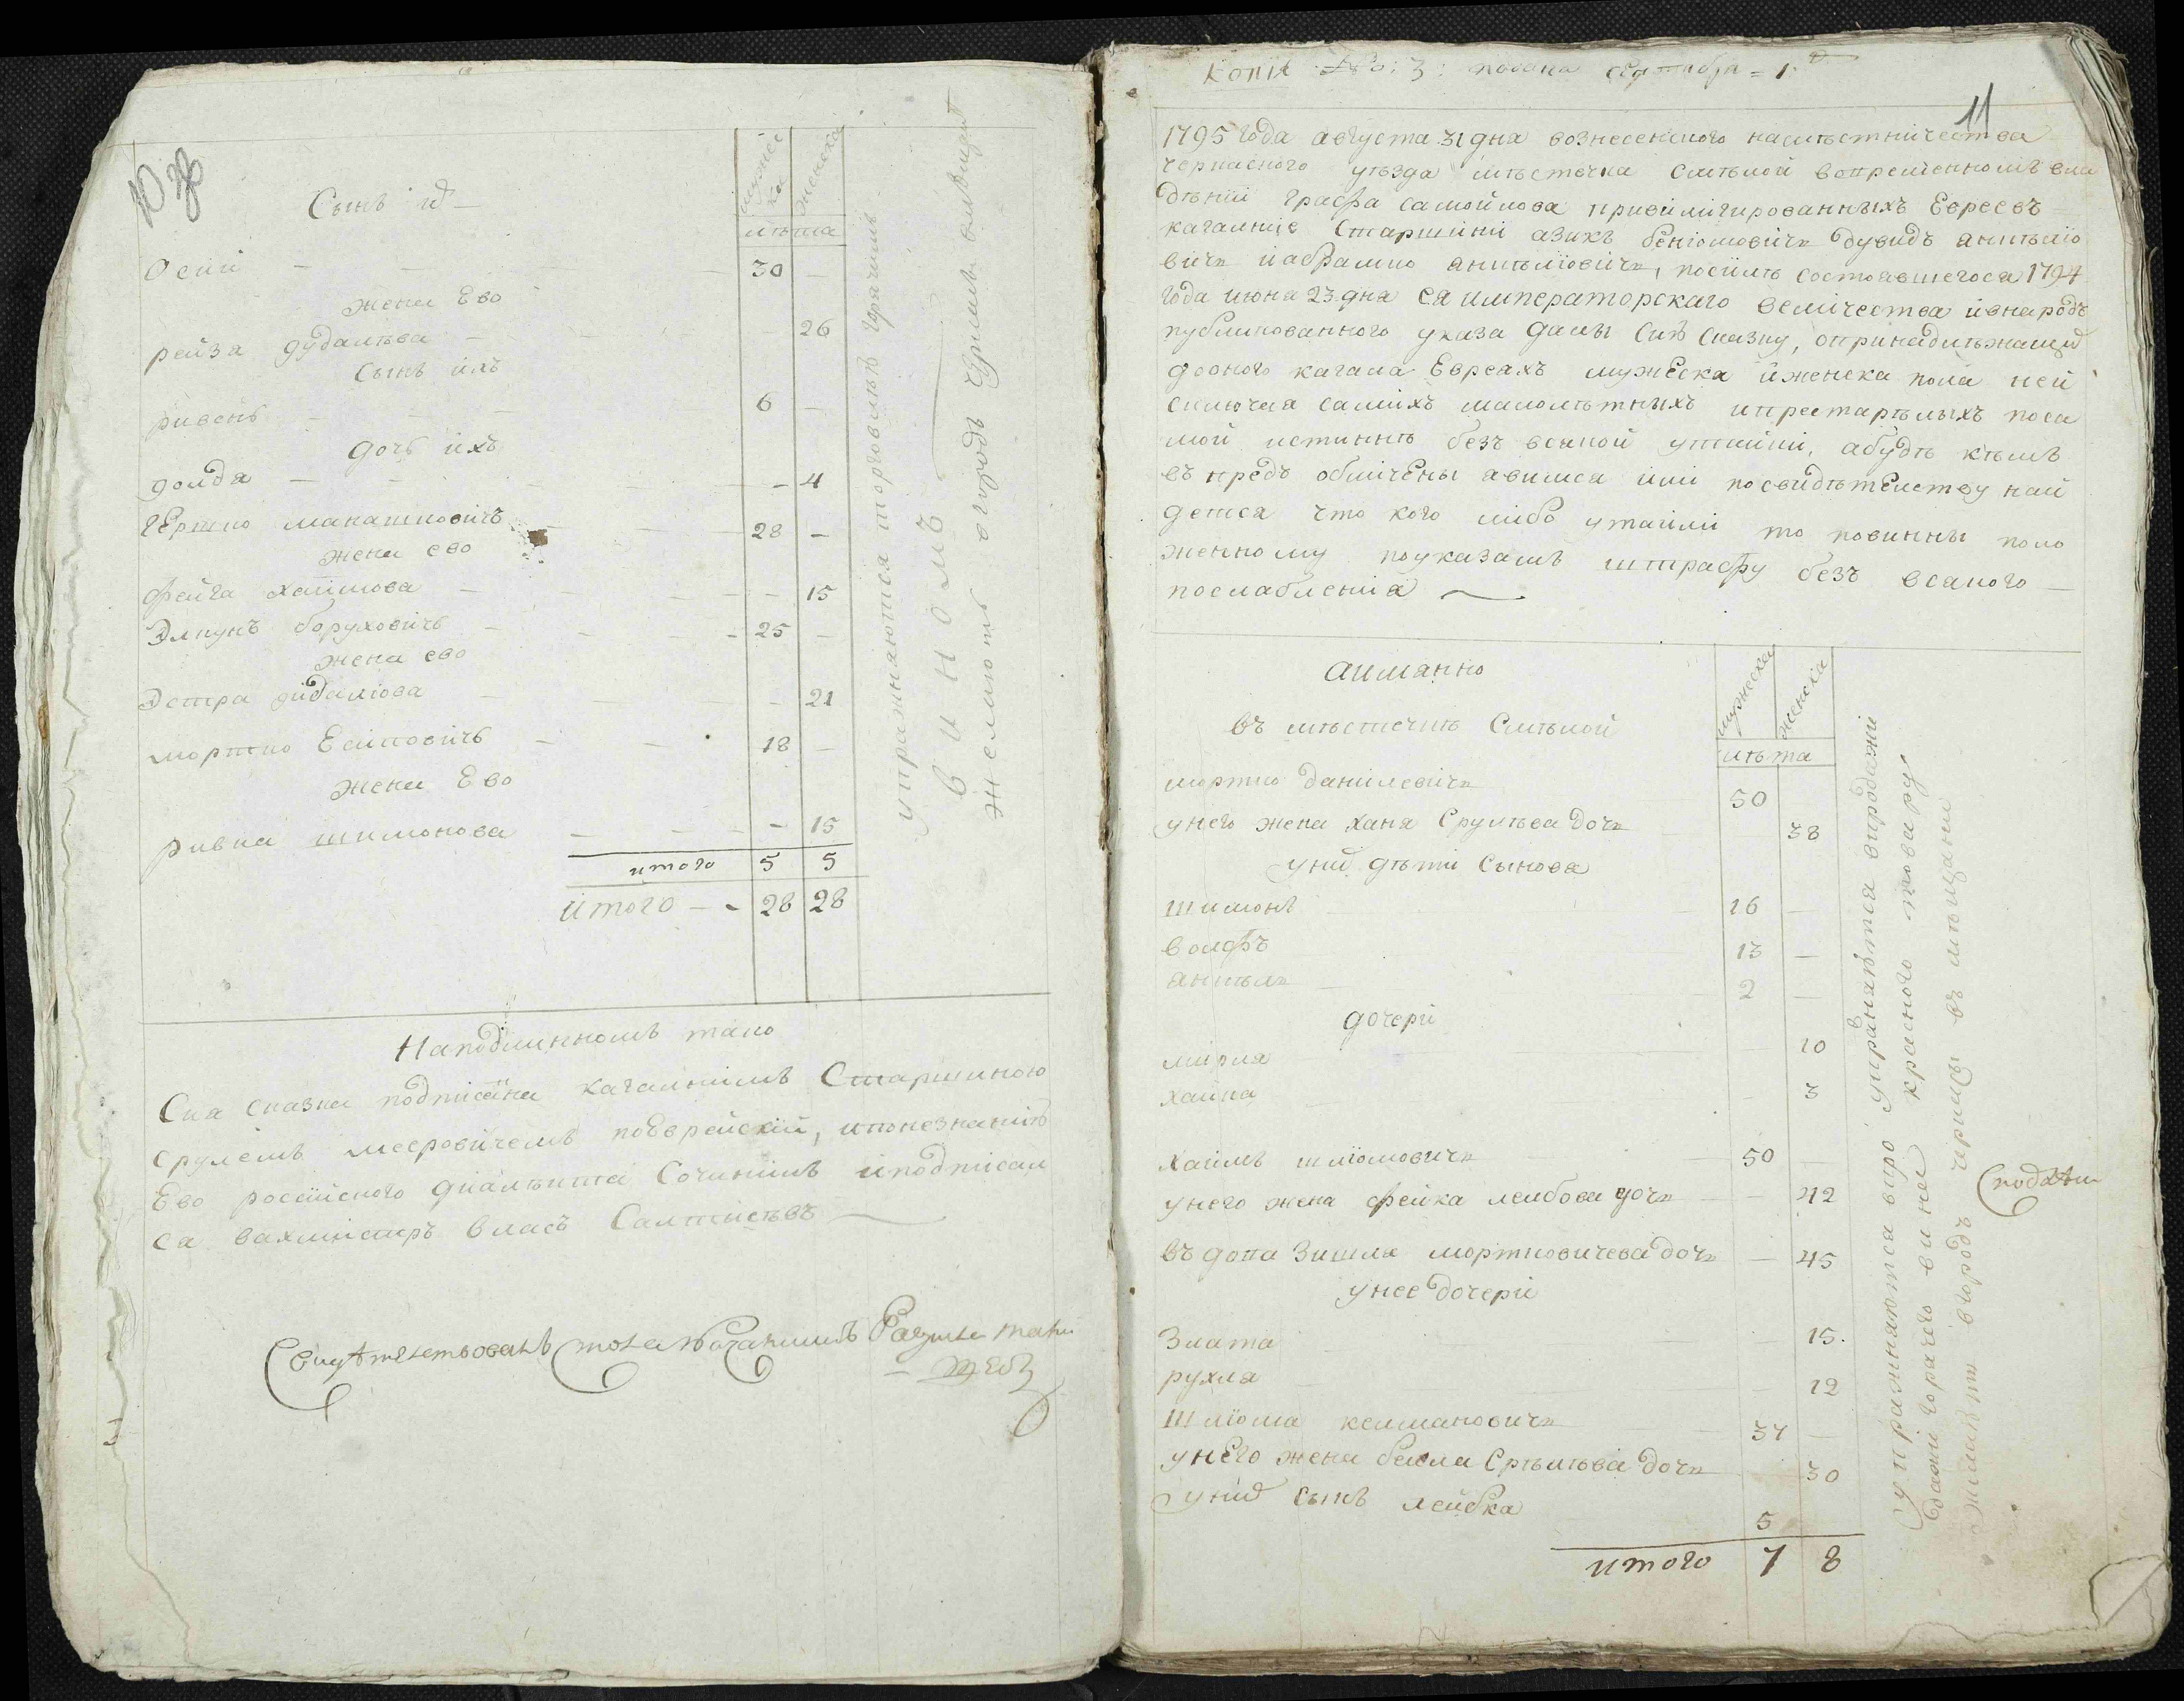 10 зв
мужеска
женска
лѣта
Сынъ их
Осип 30 —
жена Ево
рейза дудалѣва — 26
Сынъ ихъ
рывенъ 6 —
дочь ихъ
долда — 4
Гершко манашковичъ 28 —
жена ево
фейга хаимова — 15
Элкунъ боруховичъ 25 —
жена ево
Эстра гидалiова — 21
мортко Есиповичъ 18 —
жена Ево
ривка шимонова — 15
итого 5 5
Итого 28 28
упражняются торговлью горячимъ
виномъ
желают вгородъ
Наподлинномъ тако
Сия сказка подписана кагалнимъ Старшиною
Срулемъ мееровичемъ поЕврейский, ипонезнанию
Ево росийского диалѣкта Сочинилъ иподписал
ся вахмистръ власъ Салтисѣвъ
Копiя №: 3: подана сентября = 1
11
1795 года августа 31 дня вознесенского намѣстничества
черкаского уѣзда мѣстечка Смѣлой вопределенномъ вла
дѣнии графа самойлова привилигированныхъ Евреевъ
кагалние Старшини азикъ бенiомовичъ дувидъ аншѣлiо
вичъ иабрамко аншѣлiовичъ, посилѣ состоявшегося 1794
года июня 23 дня ея императорскаго величества ивнародъ
публикованного указа дали Сию Сказку, опринадлѣжащих
дооного кагала Евреяхъ мужеска иженска пола неи
сключая самихъ малолѣтныхъ ипрестарѣлыхъ поса
мой истиннѣ безъ всякой утайки, абудѣ кѣмъ
въ предъ обличены явимся или посвидѣтелству най
детса что кого либо утаили то повинны поло
женному поуказамъ штрафу безъ всякого
послабления
аимянно
мужеска
женска
лѣта
въ мѣстечкѣ Смѣлой
мортко данилевичъ 50
унего жена ханя Срулѣва дочь 38
уних дѣти Сынова
Шимонъ 16 —
волфъ 13 —
аншѣль 2 —
дочери
мирля — 10
хайка — 3
хаимъ шлiомовичъ 50 —
унего жена фейка лейбова дочь — 42
вдова Зисля мортковичева дочь — 45
унее дочери
Злата — 15
рухля — 12
Шлiома келмановичъ 37 —
унего жена бейла Срѣлѣва дочь 30
уних сынъ лейбка 5
итого 7 8
упражняются впродажи
красного товару